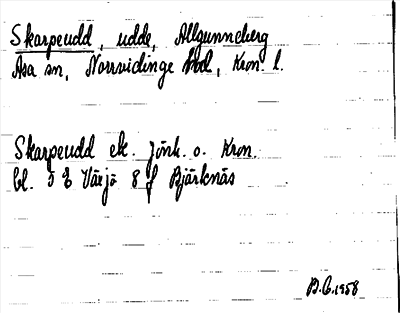 Skarpeudd, udde, Allgunneberg
Asa sn, Norrvidinge hd, Kron. l.
Skarpeudd ek. Jönk. o. Kron.
bl. 5 E Växjö 8 f Bjärknäs
B.C. 1958